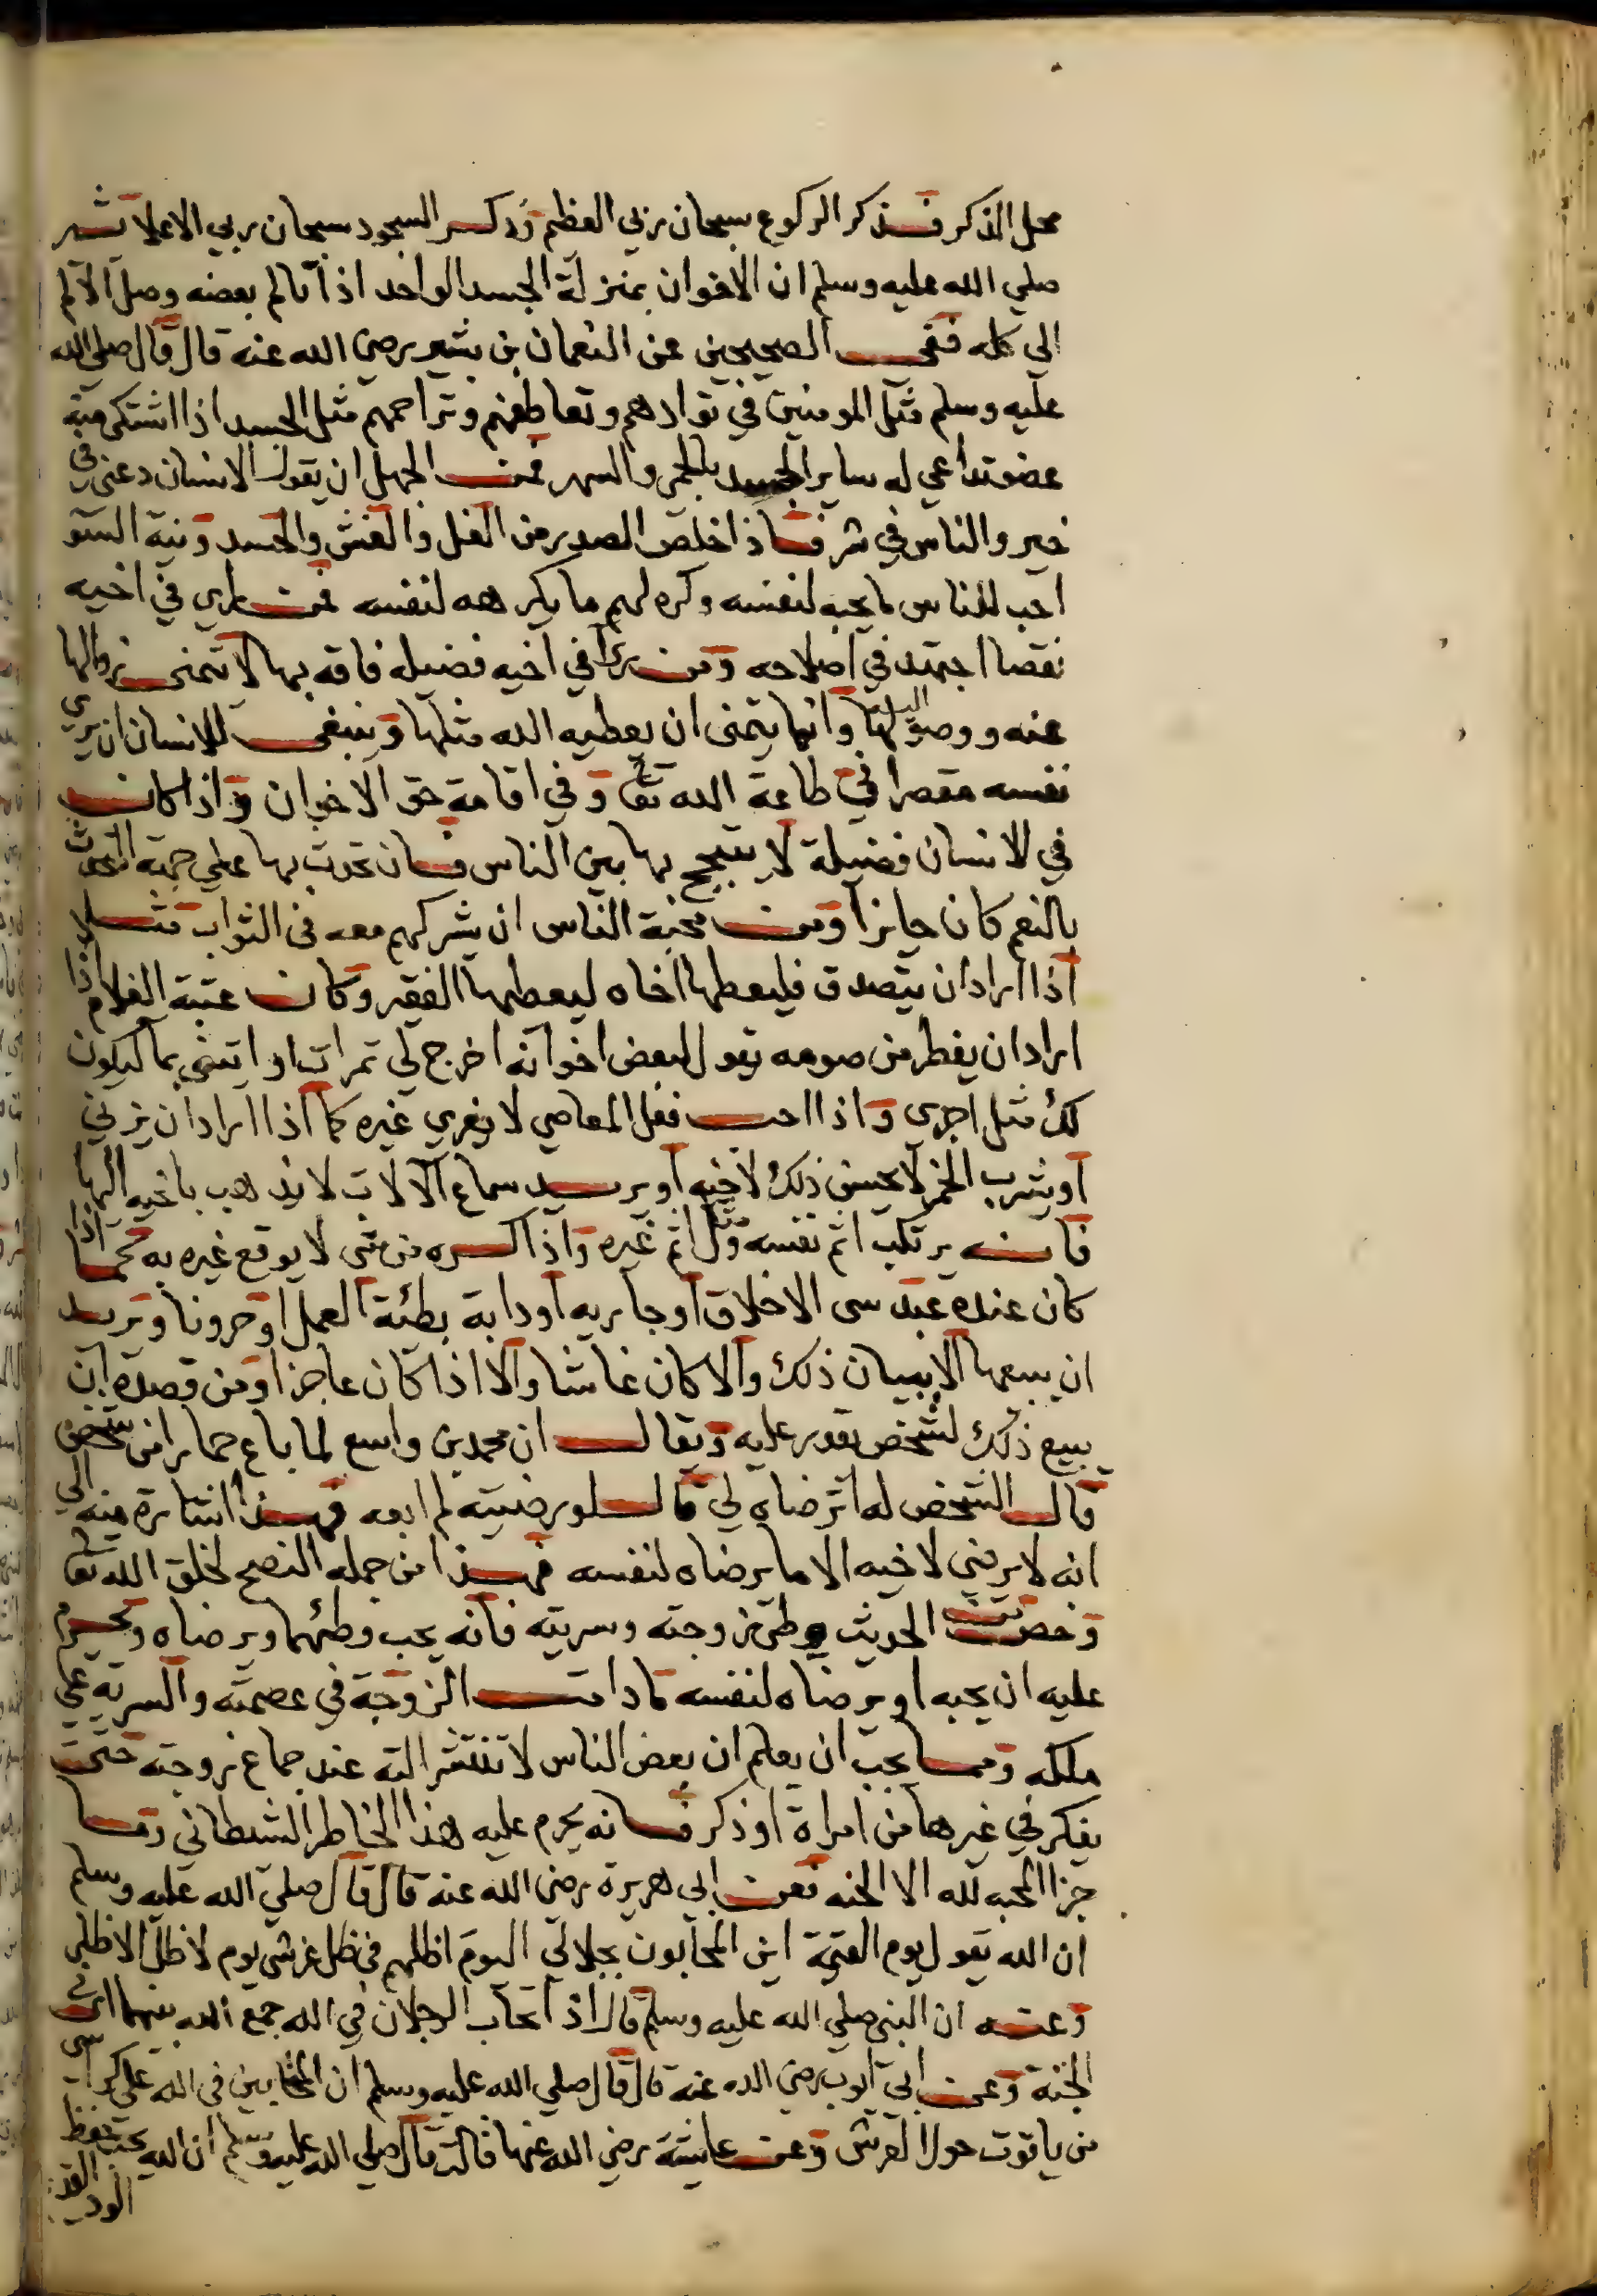 محل الذكر فذكر الركوع سبحان ربي العظيم وذكر السجود سبحان ربي الاعلا تشهر
صلي الله عليه وسلم ان الاخوان بمنزلة الجسد الواحد اذا تالم بعضه وصل الالم
الي كله ففي الصحيحين عن النعمان بن بشير رضي الله عنه قال قال صلي الله
عليه وسلم مثل المومنين في توادهم وتعاطفهم وتراحمهم مثل الجسد اذا اشتكي منه
عضو تداعي له ساير الجسد بالحمي والسهر فمن الجهل ان يقول الانسان دعني في
خير والناس في شر فاذا خلص الصدر من الغل والغش والحسد ونية السو
احب للناس ما يحبه لنفسه وكره لهم ما يكرهه لنفسه فمن راي في اخيه
نقصا اجتهد في اصلاحه ومن راي في اخيه فضيله فاقه بها لا يتمني زوالها
عنه ووصولها اليه وانما يتمني ان يعطيه الله مثلها وينبغي للانسان ان يري
نفسه مقصرا في طاعة الله تعا وفي اقامة حق الاخوان واذا كانت
في الانسان فضيلة لا يتبجح بها بين الناس فان تحدث بها علي جهة التحدث
بالنعم كان جايزا ومن محبة الناس ان يشركهم معه في الثواب مثلا
اذا اراد ان يتصدق فليعطها اخاه ليعطيها الفقير وكان عتبة الغلام اذا
اراد ان يفطر من صومه يقول لبعض اخوانه اخرج لي تمرات او ايتني بما ليكون
لك مثل اجري واذا احب فعل المعاصي لا يغري غيره كما اذا اراد ان يزني
او يشرب الخمر لا يحسن ذلك لاخيه او يريد سماع الالات لا يذهب باخيه اليها
فانه يرتكب اثم نفسه ومثل اثم غيره واذا كره من شي لا يوقع غيره به كما اذا
كان عنده عبد سي الاخلاق او جاريه او دابة بطئة العمل او حرونا ويريد
ان يبيعها الا ببيان ذلك والا كان غاشا والا اذا كان عاجزا ومن قصده ان
يبيع ذلك لشخص يقدر عليه ويقال ان محمد بن واسع لما باع حمارا من شخص
قال الشخص له اترضاه لي قال لو رضيته لم ابعه فهذا اشارة منه الي
انه لا يرضي لاخيه الا ما يرضاه لنفسه فهذا من جمله النصح لخلق الله تعا
وخصت الحديث وطي زوجته وسريته فانه يحب وطئهما ويرضاه ويحرم
عليه ان يحبه او يرضاه لنفسه ما دامت الزوجة في عصمته والسرية علي
ملكه ومما يجب ان يعلم ان بعض الناس لا تنتشر الته عند جماع زوجته حتي
يفكر في غيرها من امراة او ذكر فانه يحرم عليه هذا الخاطر الشيطاني وما
جزا المحبه لله الا الجنه فعن ابي هريرة رضي الله عنه قال قال صلي الله عليه وسلم
ان الله يقول يوم القيمة اين المتحابون بجلالي اليوم اظلهم في ظل عرشي يوم لا ظل الا ظلي
وعنه ان النبي صلي الله عليه وسلم قال اذا تحاب الرجلان في الله جمع الله بينهما في
الجنة وعن ابي ايوب رضي الله عنه قال قال صلي الله عليه وسلم ان المتحابين في الله علي كراسي
من ياقوت حول العرش وعن عايشة رضي الله عنها قالت قال صلي الله عليه وسلم ان الله يحب حفظ
الود القديم